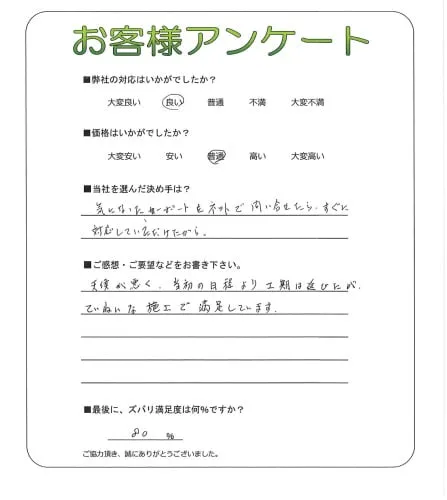 お客様アンケート
■弊社の対応はいかがでしたか?
大変良い 良い 普通 不満 大変不満
■価格はいかがでしたか?
大変安い 安い 普通 高い 大変高い
■当社を選んだ決め手は?
気になったカーポートをネットで問い合せたら、すぐに
対応していただけたから。
■ご感想・ご要望などをお書き下さい。
天候が悪く、当初の日程より工期は延びたが、
ていねいな施工で満足しています。
■最後に、ズバリ満足度は何%ですか?
80 %
ご協力頂き、誠にありがとうございました。